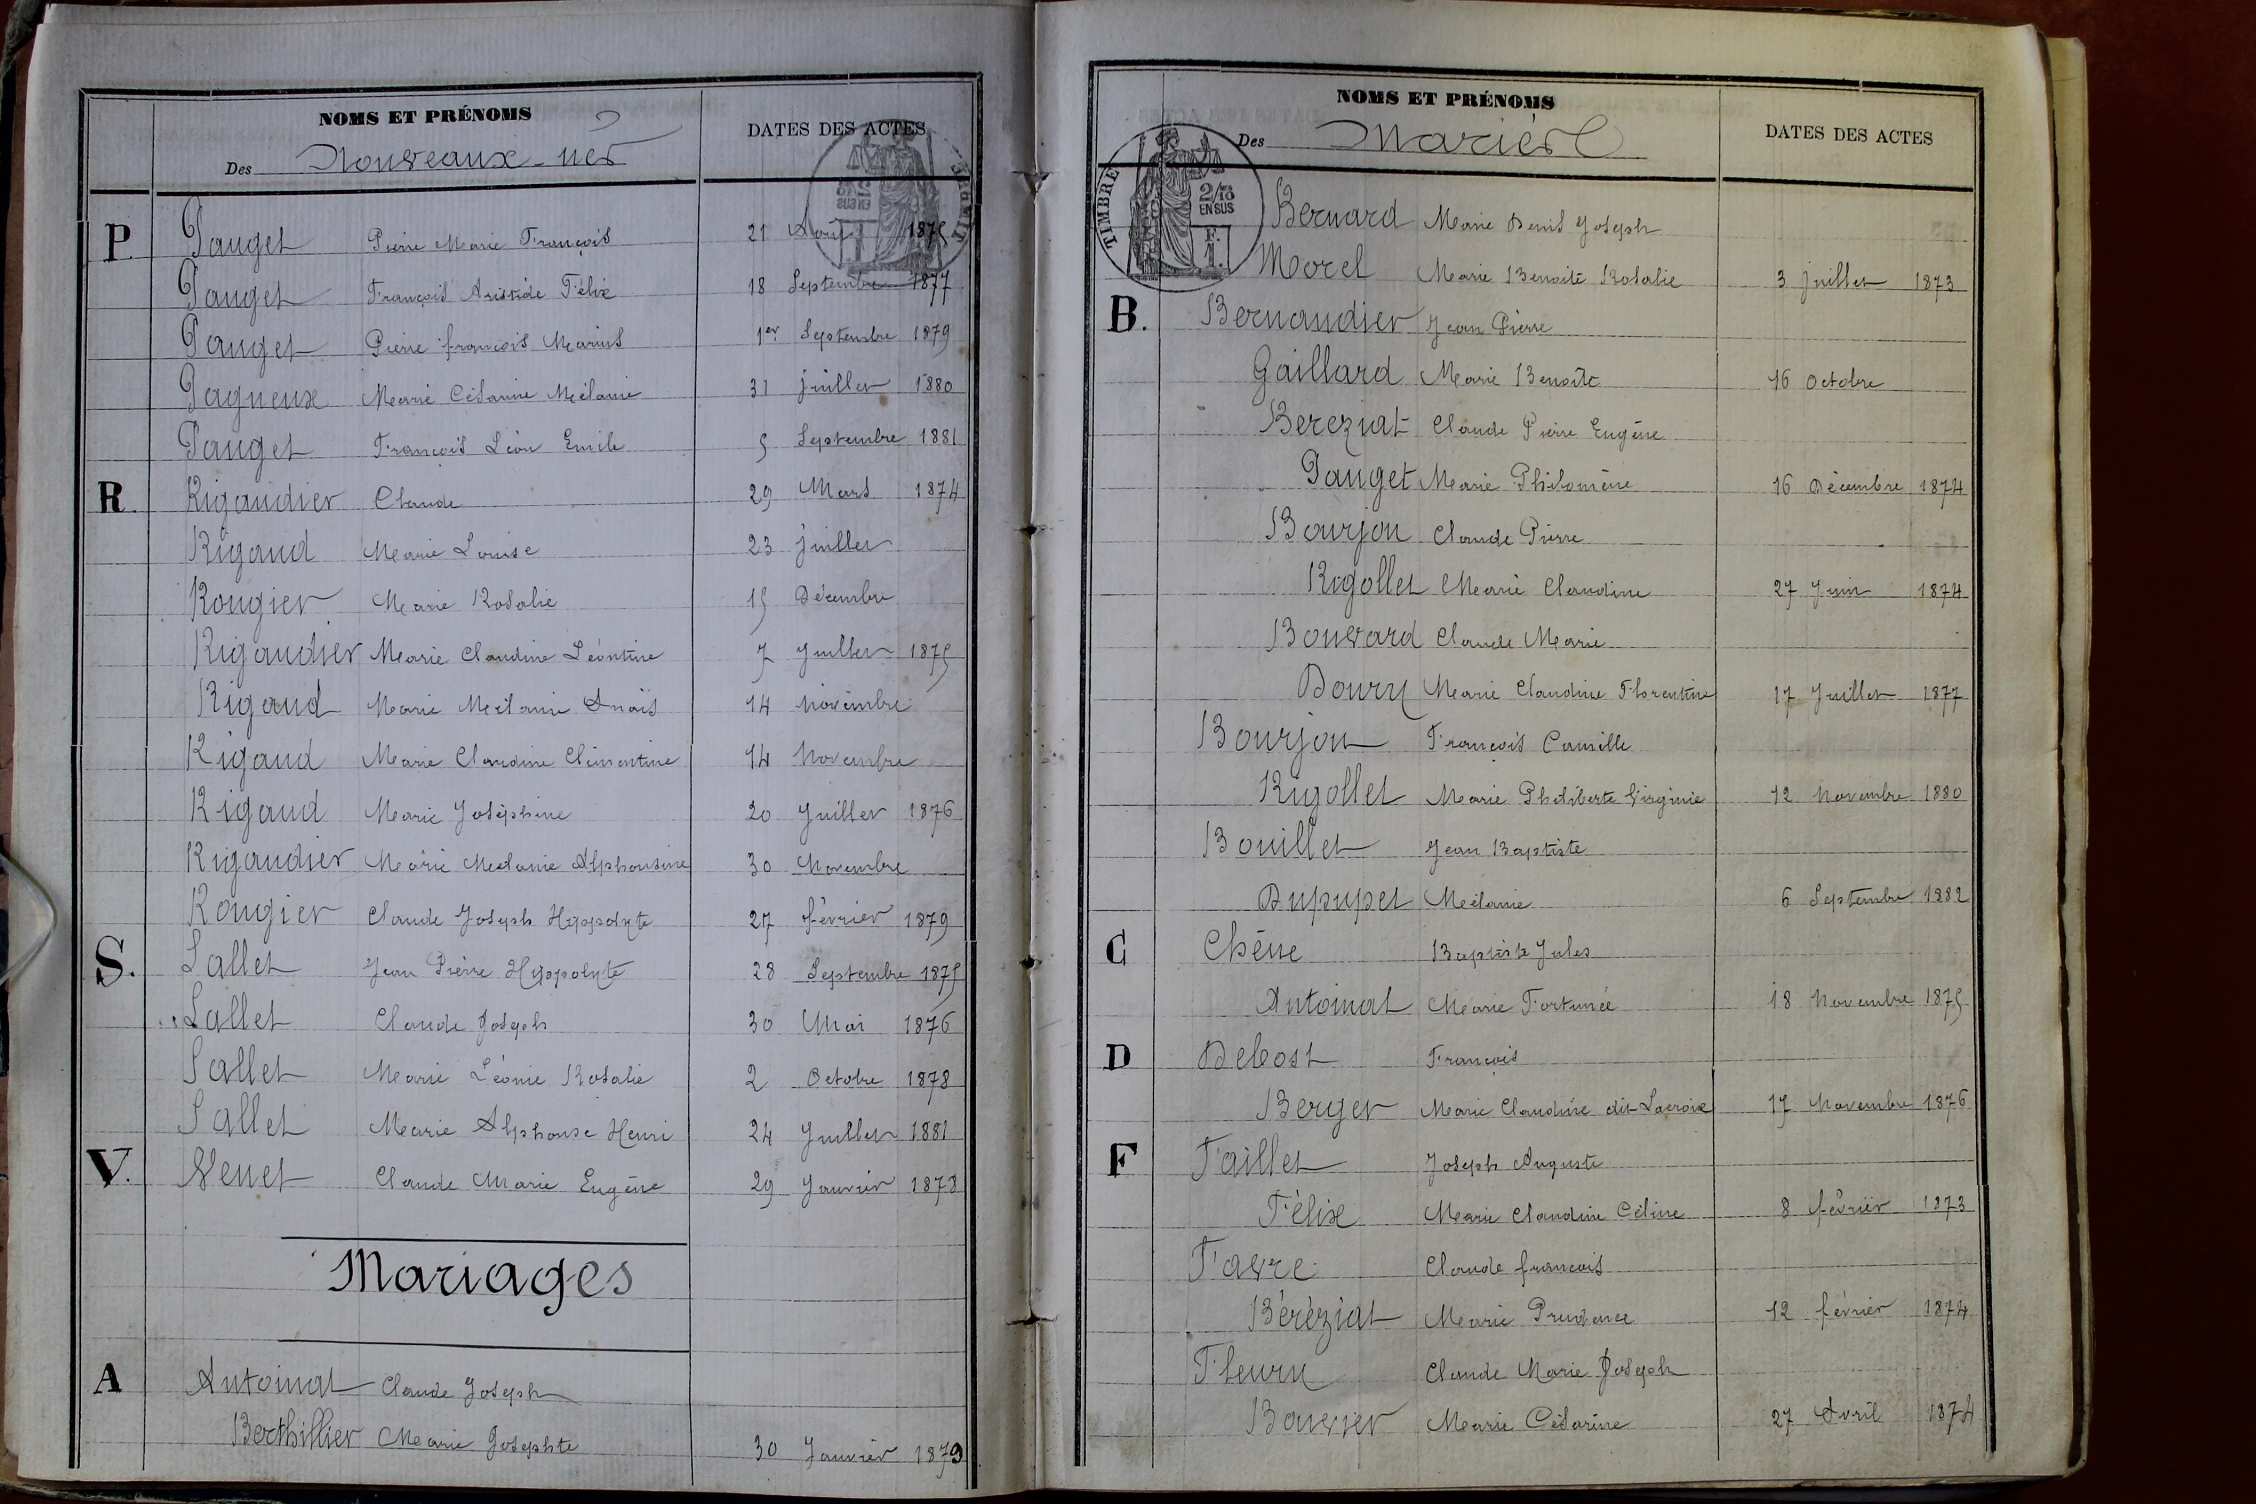 NOMS ET PRÉNOMS
Des Nouveaux-nés
DATES DES ACTES
P. Pauget Pierre Marie François 21 Août 1875
Pauget François Aristide Félix 18 Septembre 1877
Pauget Pierre françois Marius 1er Septembre 1879
Pagneux Marie Césarine Mélanie 31 juillet 1880
Pauget François Léon Emile 5 Septembre 1881
R. Rigaudier Claude 29 Mars 1874
Rigaud Marie Louise 23 juillet
Rougier Marie Rosalie 15 Décembre
Rigaudier Marie Claudine Léontine 7 Juillet 1875
Rigaud Marie Mélanie Anaïs 14 Novembre
Rigaud Marie Claudine Clémentine 14 Novembre
Rigaud Marie Joséphine 20 Juillet 1876
Rigaudier Marie Mélanie Alphonsine 30 Novembre
Rougier Claude Joseph Hyppolyte 27 février 1879
S. Sallet Jean Pierre Hyppolyte 28 Septembre 1875
Sallet Claude Joseph 30 Mai 1876
Sallet Marie Léonie Rosalie 2 Octobre 1878
Sallet Marie Alphonse Henri 24 Juillet 1881
V. Venet Claude Marie Eugène 29 Janvier 1878
Mariages
A Antoinat Claude Joseph
Berthillier Marie Josephte 30 Janvier 1879
NOMS ET PRÉNOMS
Des Mariés
DATES DES ACTES
TIMBRE
2/10
EN SUS
F.
1.
Bernard Marie Denis Joseph
Morel Marie Benoîte Rosalie 3 juillet 1873
B. Bernaudier Jean Pierre
Gaillard Marie Benoîte 16 Octobre
Bereziat Claude Pierre Eugène
Pauget Marie Philomène 16 Décembre 1874
Bourjon Claude Pierre
Rigollet Marie Claudine 27 Juin 1874
Bouvard Claude Marie
Doury Marie Claudine Florentine 17 Juillet 1877
Bourjon François Camille
Rigollet Marie Philiberte Virginie 12 Novembre 1880
Bouillet Jean Baptiste
Dupupet Mélanie 6 Septembre 1882
C Chêne Baptiste Jules
Antoinat Marie Fortunée 18 Novembre 1875
D Debost François
Berger Marie Claudine dit Lacroix 17 Novembre 1876
F Faillet Joseph Auguste
Félix Marie Claudine Céline 8 février 1873
Favre Claude françois
Béréziat Marie Prudence 12 février 1874
Fleury Claude Marie Joseph
Bouvier Marie Césarine 27 Avril 1874